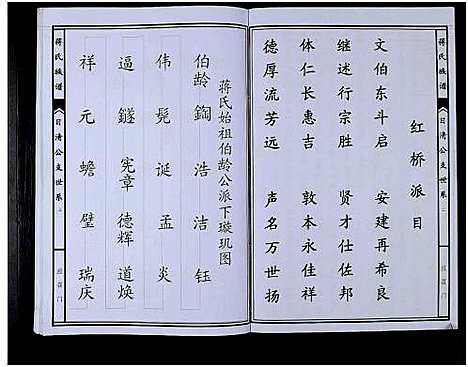 红桥派目
文伯东斗启 安建再希良
继述行宗胜 贤才仕佐邦
体仁长惠吉 敦本永佳祥
德厚流芳远 声名万世扬
蒋氏族谱
日清公支世系
蒋氏始祖伯龄公派下璇玑图
伯龄 鋾 浩 洁 钰
伟 髡 诞 孟 炎
逼 鐩 宪章 德辉 道焕
祥 元 蟾 璧 瑞庆
蒋氏族谱
日清公支世系